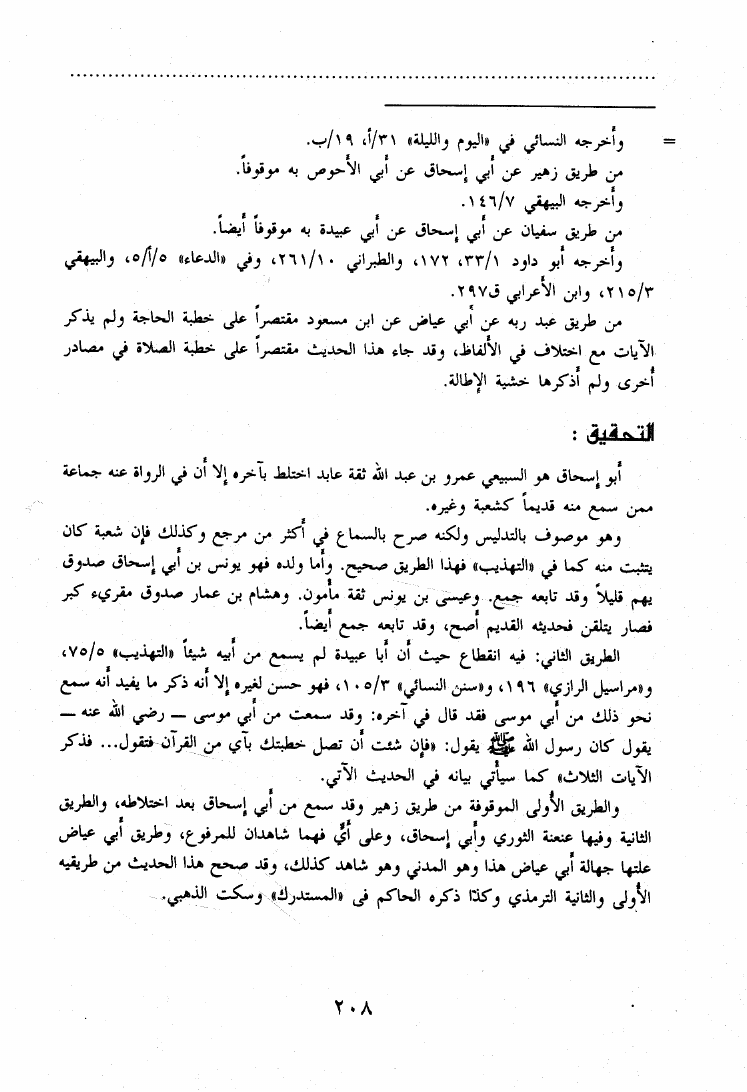 = وأخرجه النسائي في «اليوم والليلة» ٣١/أ، ١٩/ب.
من طريق زهير عن أبي إسحاق عن أبي الأحوص به موقوفاً.
وأخرجه البيهقي ١٤٦/٧.
من طريق سفيان عن أبي إسحاق عن أبي عبيدة به موقوفاً أيضاً.
وأخرجه أبو داود ٣٣/١، ١٧٢، والطبراني ٢٦١/١٠، وفي «الدعاء» ٥/أ/٥، والبيهقي
٢١٥/٣، وابن الأعرابي ق٢٩٧.
من طريق عبد ربه عن أبي عياض عن ابن مسعود مقتصراً على خطبة الحاجة ولم يذكر
الآيات مع اختلاف في الألفاظ، وقد جاء هذا الحديث مقتصراً على خطبة الصلاة في مصادر
أخرى ولم أذكرها خشية الإطالة.
التحقيق :
أبو إسحاق هو السبيعي عمرو بن عبد الله ثقة عابد اختلط بآخره إلا أن في الرواة عنه جماعة
ممن سمع منه قديماً كشعبة وغيره.
وهو موصوف بالتدليس ولكنه صرح بالسماع في أكثر من مرجع وكذلك فإن شعبة كان
يتثبت منه كما في «التهذيب» فهذا الطريق صحيح. وأما ولده فهو يونس بن أبي إسحاق صدوق
يهم قليلاً وقد تابعه جمع. وعيسى بن يونس ثقة مأمون. وهشام بن عمار صدوق مقرىء كبر
فصار يتلقن فحديثه القديم أصح، وقد تابعه جمع أيضاً.
الطريق الثاني: فيه انقطاع حيث أن أبا عبيدة لم يسمع من أبيه شيئاً «التهذيب» ٧٥/٥،
و«مراسيل الرازي» ١٩٦، و«سنن النسائي» ١٠٥/٣، فهو حسن لغيره إلا أنه ذكر ما يفيد أنه سمع
نحو ذلك من أبي موسى فقد قال في آخره: وقد سمعت من أبي موسى ــ رضي الله عنه ــ
يقول كان رسول الله ﷺ يقول: «فإن شئت أن تصل خطبتك بآي من القرآن فتقول... فذكر
الآيات الثلاث» كما سيأتي بيانه في الحديث الآتي.
والطريق الأولى الموقوفة من طريق زهير وقد سمع من أبي إسحاق بعد اختلاطه، والطريق
الثانية وفيها عنعنة الثوري وأبي إسحاق، وعلى أيٍّ فهما شاهدان للمرفوع، وطريق أبي عياض
علتها جهالة أبي عياض هذا وهو المدني وهو شاهد كذلك، وقد صحح هذا الحديث من طريقيه
الأولى والثانية الترمذي وكذا ذكره الحاكم في «المستدرك» وسكت الذهبي.
٢٠٨